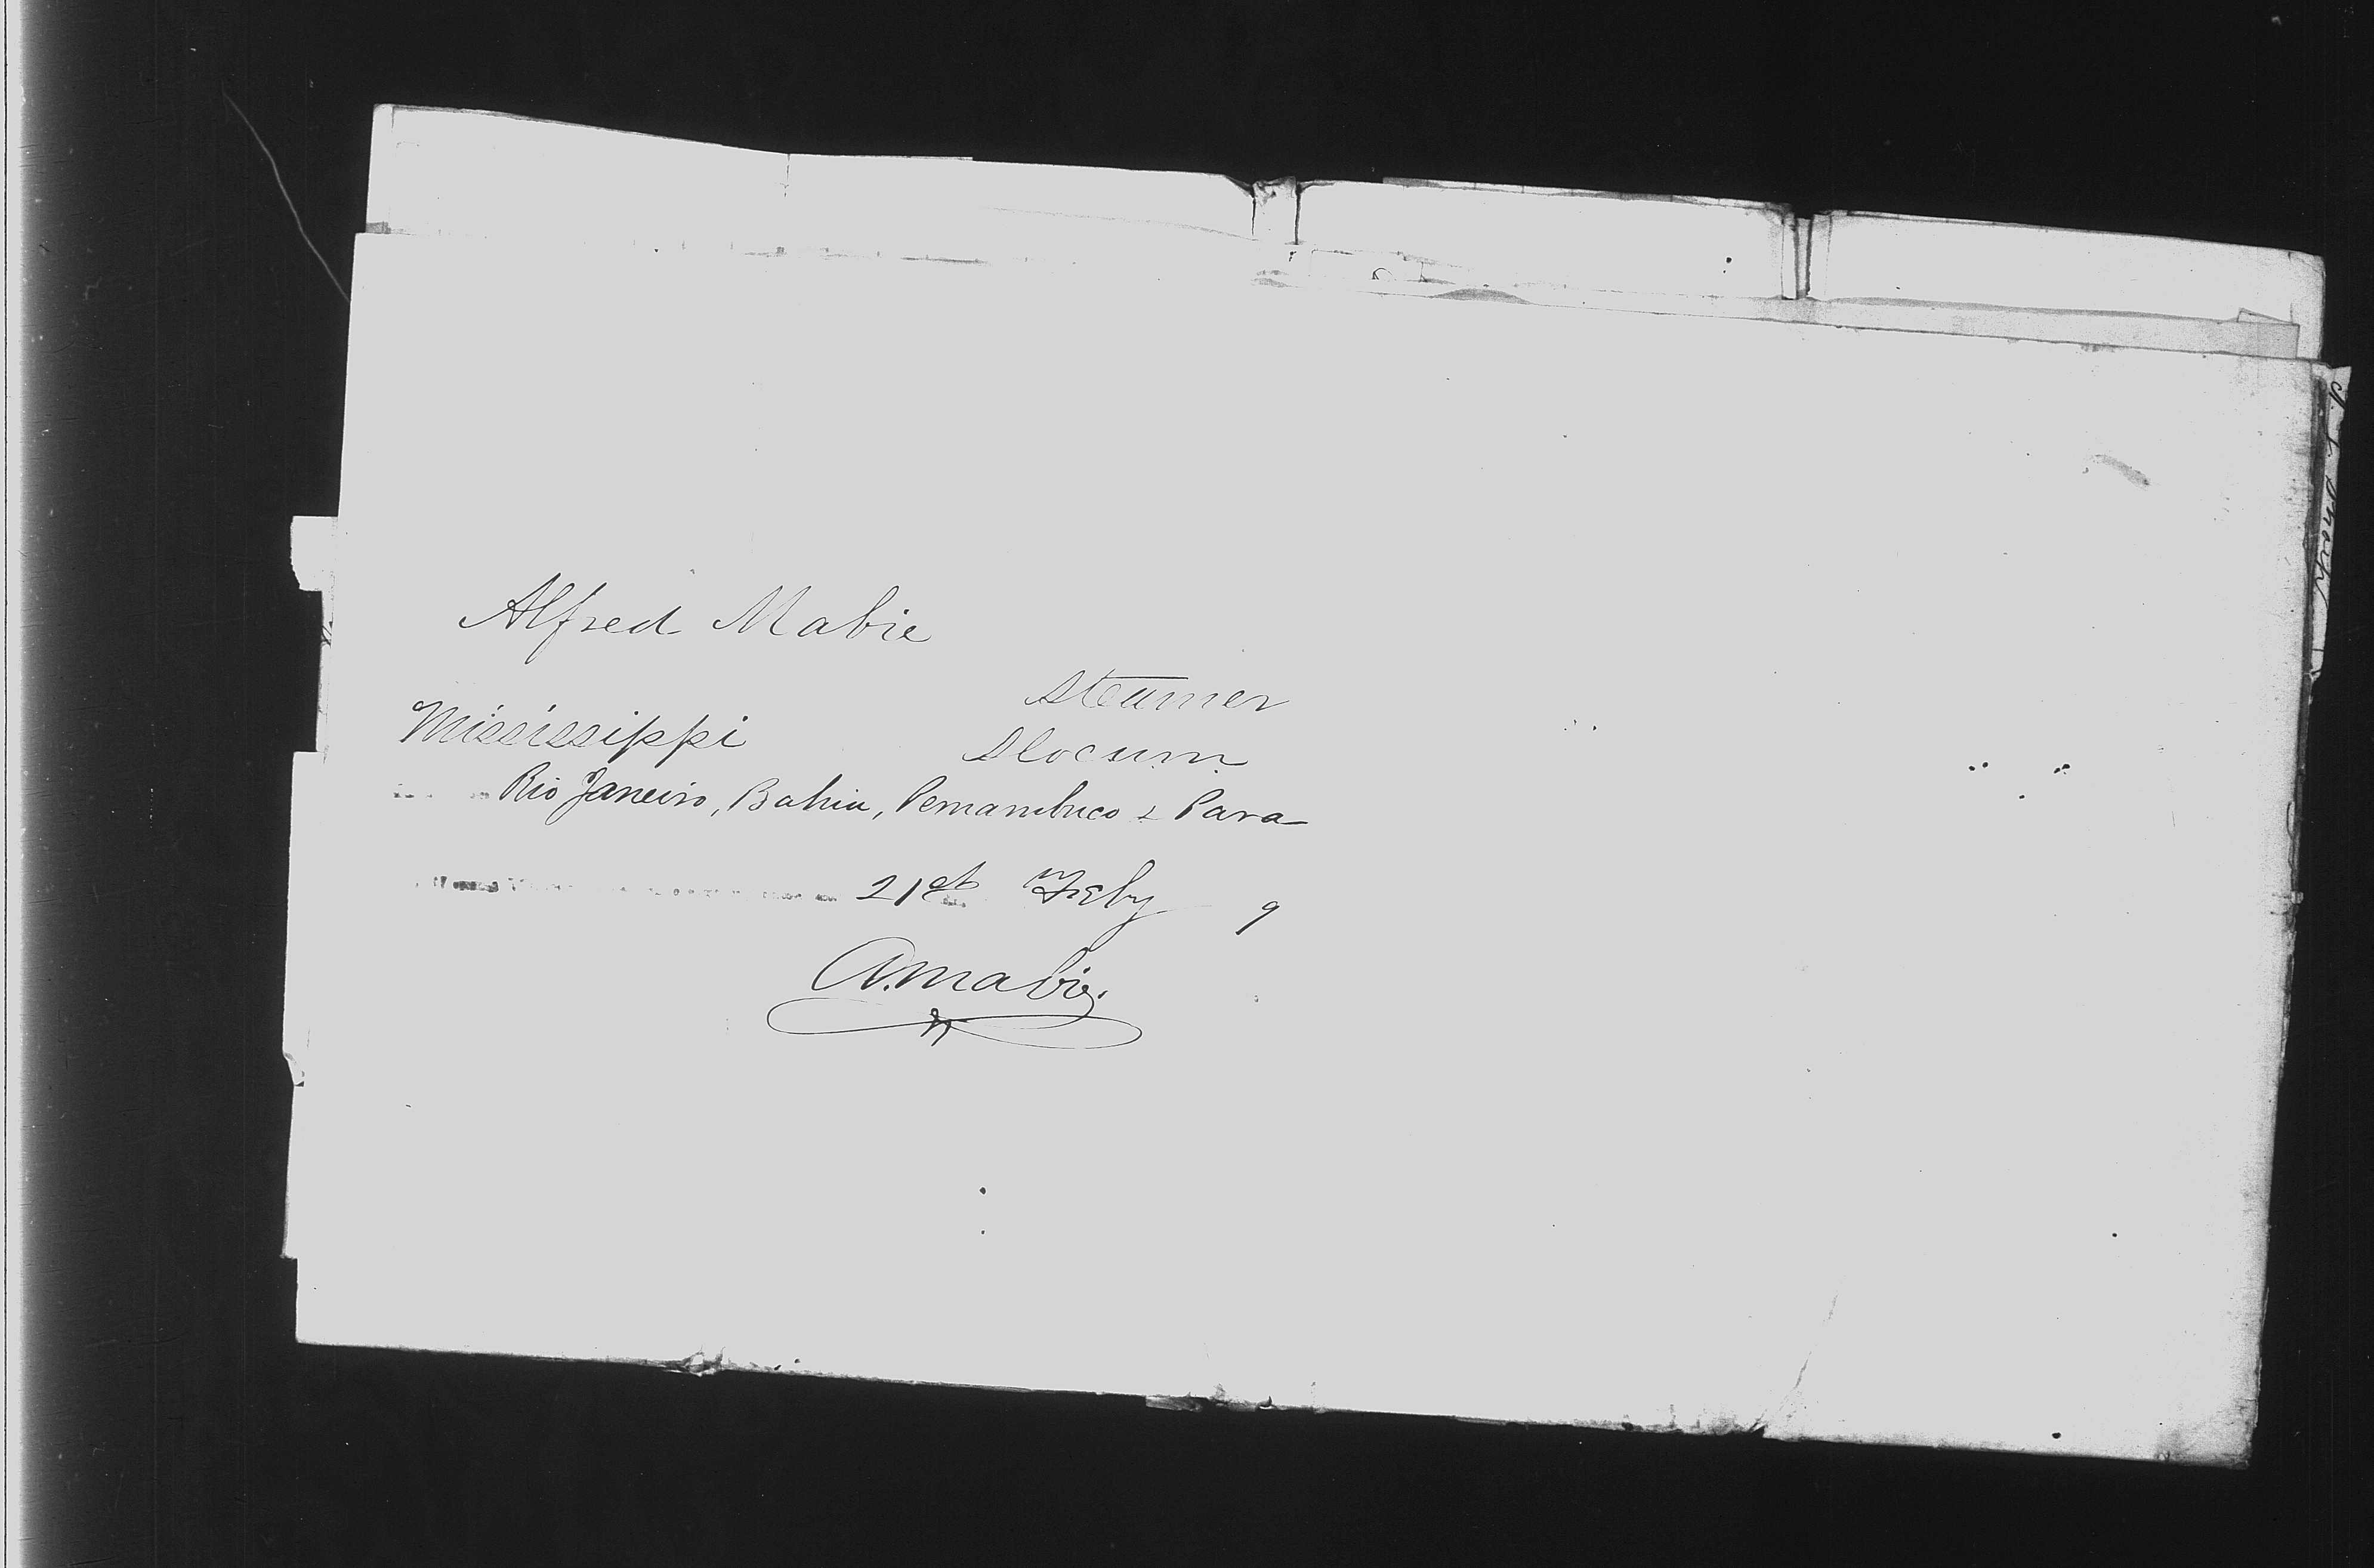 Alfred Mabie
Steamer
Mississippi Slocum
Rio Janeiro, Bahia, Pernambuco & Para
21st Feby 9
A. Mabie.